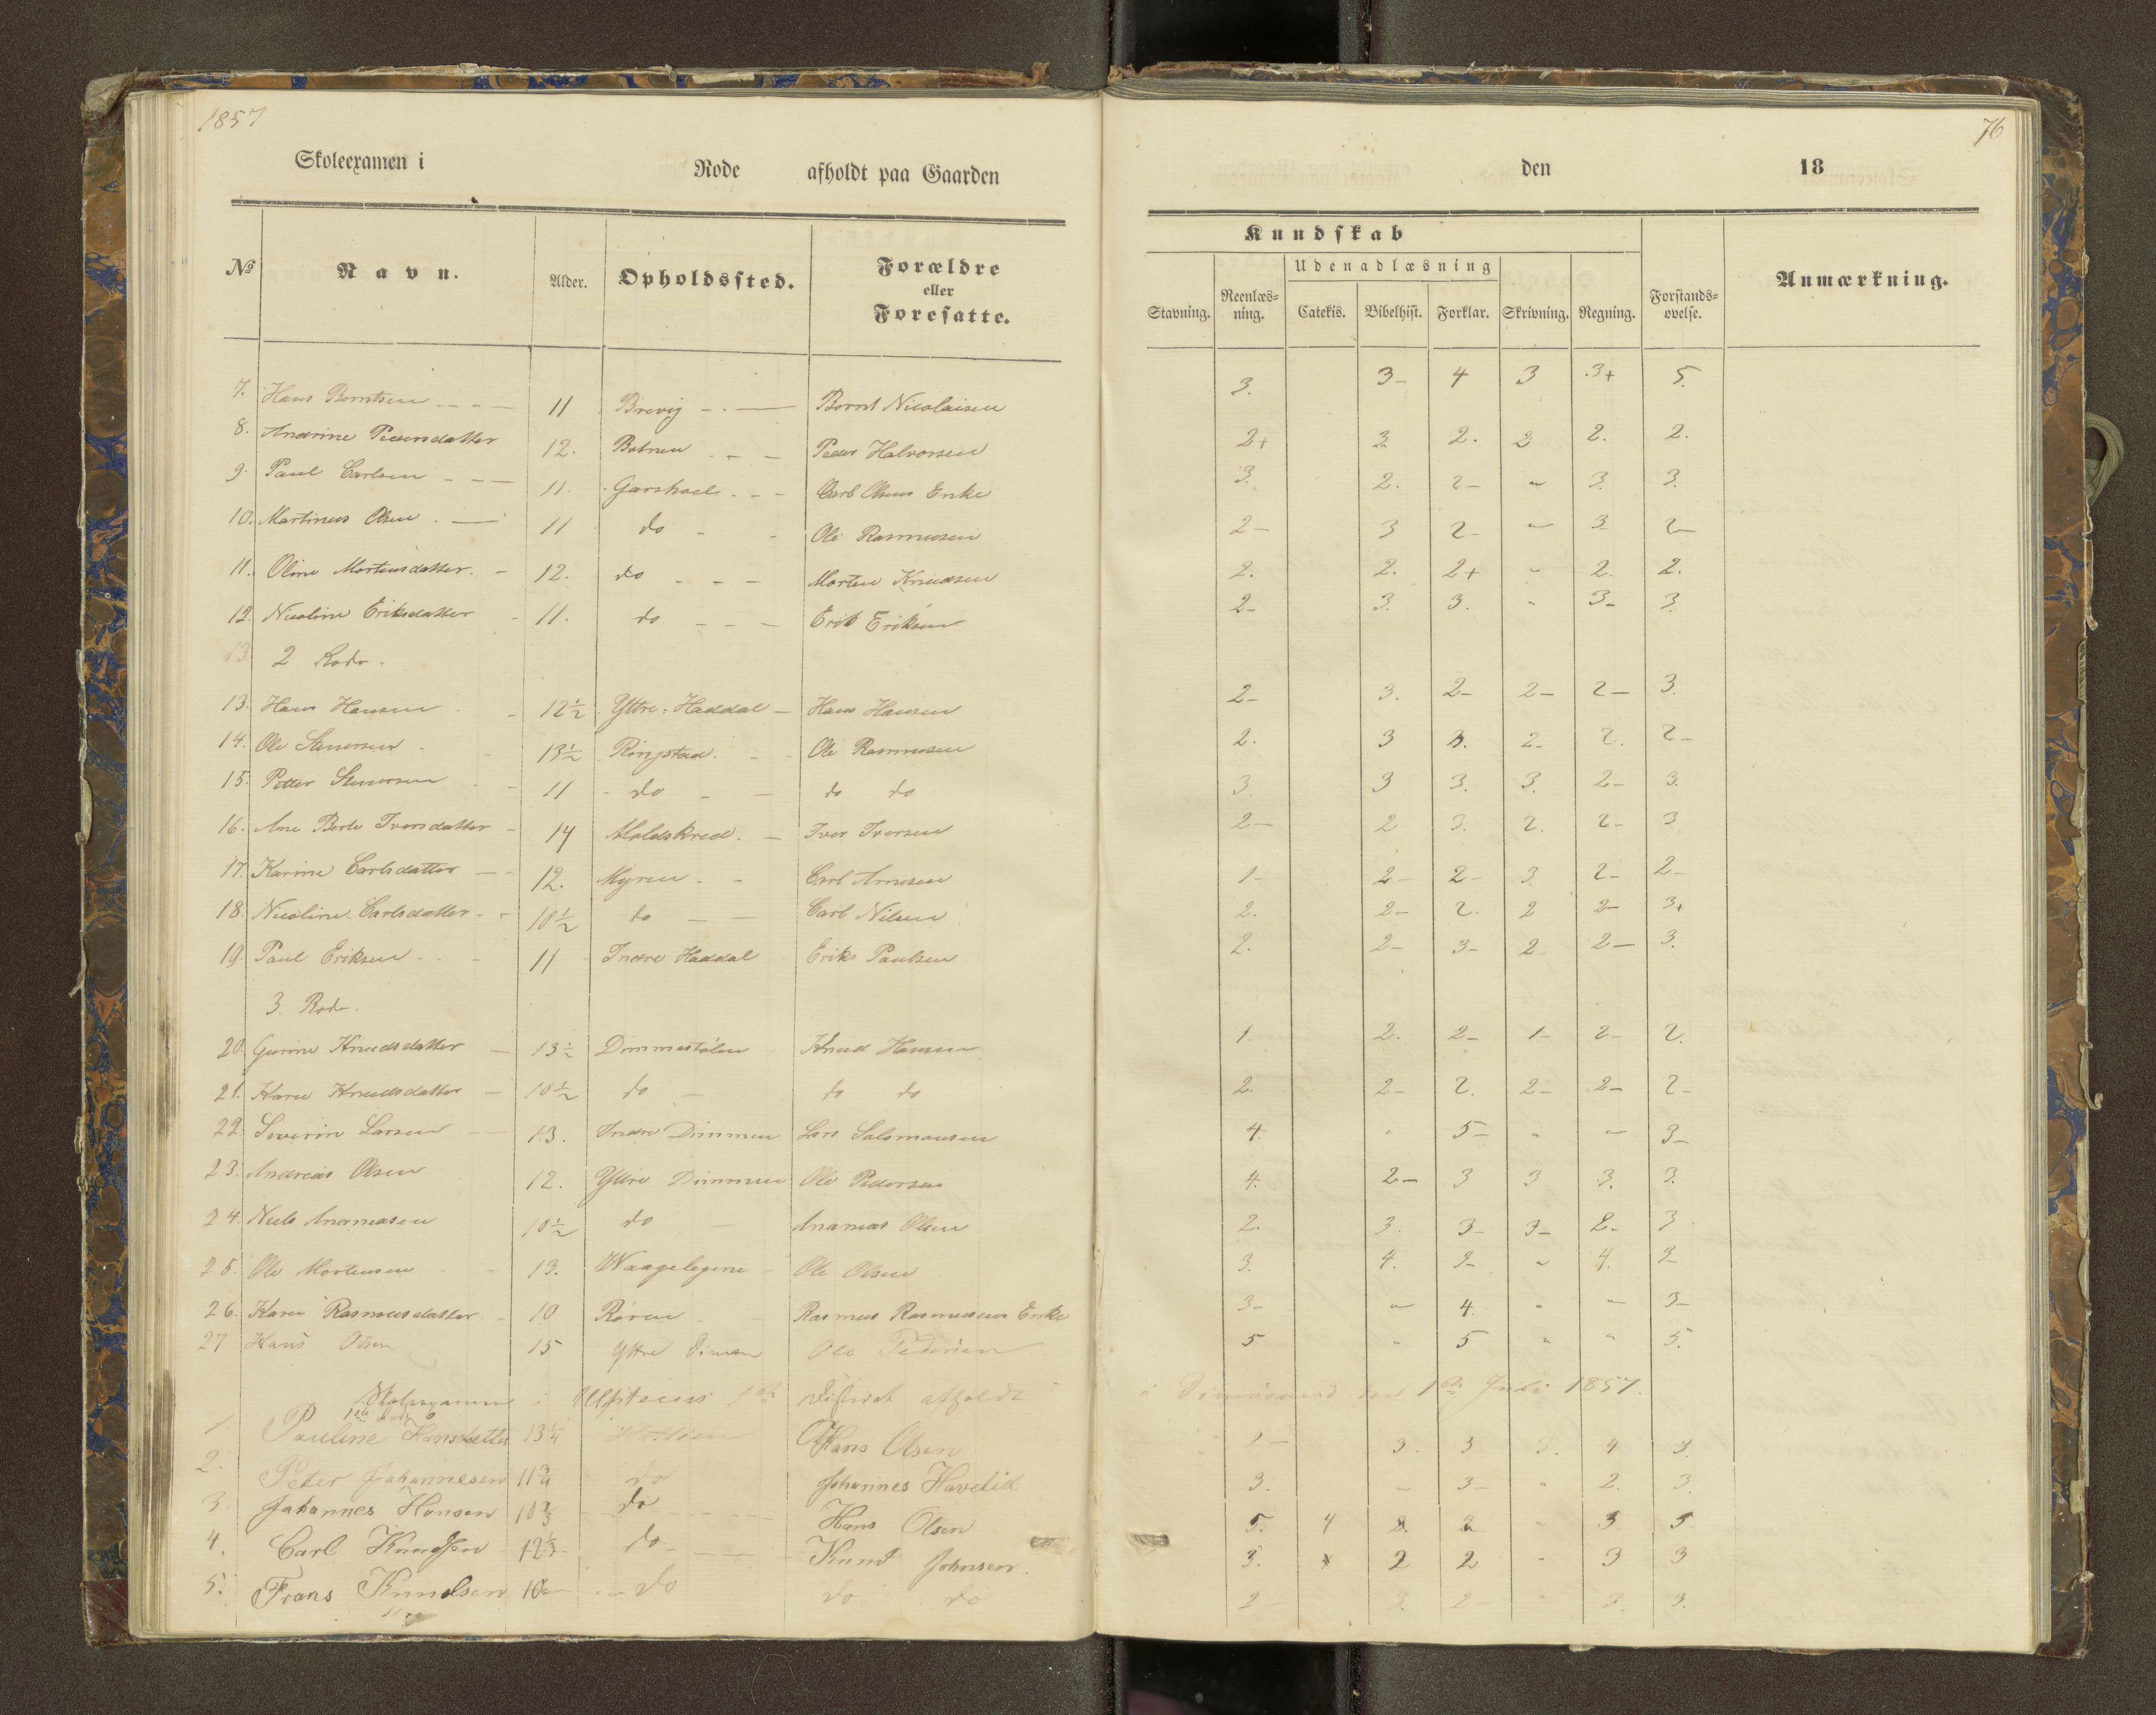 1857
76
Skoleexamen i Rode afholdt paa Gaarden den 18
Kundskab
Udenadlæsning
№ Navn. Alder. Opholdssted. Forældre eller Foresatte. Stavning. Reenlæsning. Catekis. Bibelhist. Forklar. Skrivning. Regning. Forstandsøvelse. Anmærkning.
7. Hans Berntsen 11 Brevig Bernt Nicolaisen 3. 3- 4 3 3+ 5.
8. Andrine Pedersdatter 12. Botnen Peder Halvorsen 2+ 3 2. 3 2. 2.
9. Paul Carlsen 11. Garshoel Carl Olsens Enke 3. 2. 2- " 3. 3.
10. Martinus Olsen 11 do Ole Rasmusen 2- 3 2- " 3- 2-
11. Oline Mortensdatter 12. do Morten Knudsen 2. 2. 2+ " 2. 2.
12. Nicoline Eriksdatter 11. do Erik Eriksen 2- 3. 3. " 3- 3.
13. 2 Rode.
13. Hans Hansen 12½ Yttre-Haddal Hans Hansen 2- 3. 2- 2- 2- 3.
14. Ole Stenersen 13½ Ringstad Ole Rasmusen 2. 3 3. 2- 2. 2-
15. Petter Stenersen 11 do do do 3. 3 3. 3. 2- 3.
16. Ane Berte Iversdatter 14 Moldskred Iver Iversen 2- 2 3. 2. 2- 3
17. Karine Carlsdatter 12. Myren Carl Arnesen 1- 2- 2- 3. 2- 2-
18. Nicoline Carlsdatter 10½ do Carl Nilsen 2. 2- 2. 2 2- 3+
19. Paul Eriksen 11 Indre Haddal Eriks Paulsen 2. 2- 3- 2 2- 3.
3. Rode.
20. Gurine Knudsdatter 13½ Dimmestølen Knud Hansen 1- 2. 2- 1- 2- 2.
21. Karen Knudsdatter 10½ do do do 2. 2- 2. 2- 2- 2-
22. Severin Larsen 13. Indre Dimmen Lars Salomonsen 4. " 5- " " 3-
23. Andreas Olsen 12. Yttre Dimmen Ole Pedersen 4. 2- 3 3 3. 3.
24. Niels Ananiasen 10½ do Ananias Olsen 2. 3. 3- 3- 2- 3
25. Ole Mortensen 13. Waagelegene Ole Olsen 3. 4. 3- " 4. 3-
26. Karen Rasmusdatter 10 Røren Rasmus Rasmusens Enke 3- " 4. " " 3-
27 Hans Olsen 15 Yttre Dimen Ole Pedersen 5 " 5 " " 5.
Skoleexamen i Ulfsteins 1ste District afholdt i den 1ste Juli 1857.
1ste Rode
1. Pauline Hansdatter 13¼ Hans Olsen 1- 3. 3 3. 4 3.
2. Peter Johannesen 11¾ do Johannes Havelid 3. " 3- " 2. 3.
3 Johannes Hansen do Hans Olsen 5. 4 " 3 5
4. Carl Knudsen do Knud Johnsen. 3. 2 2 " 3 3
5. Frans Knudsen 10 do do do 2- 3. 2- " 3. 3.